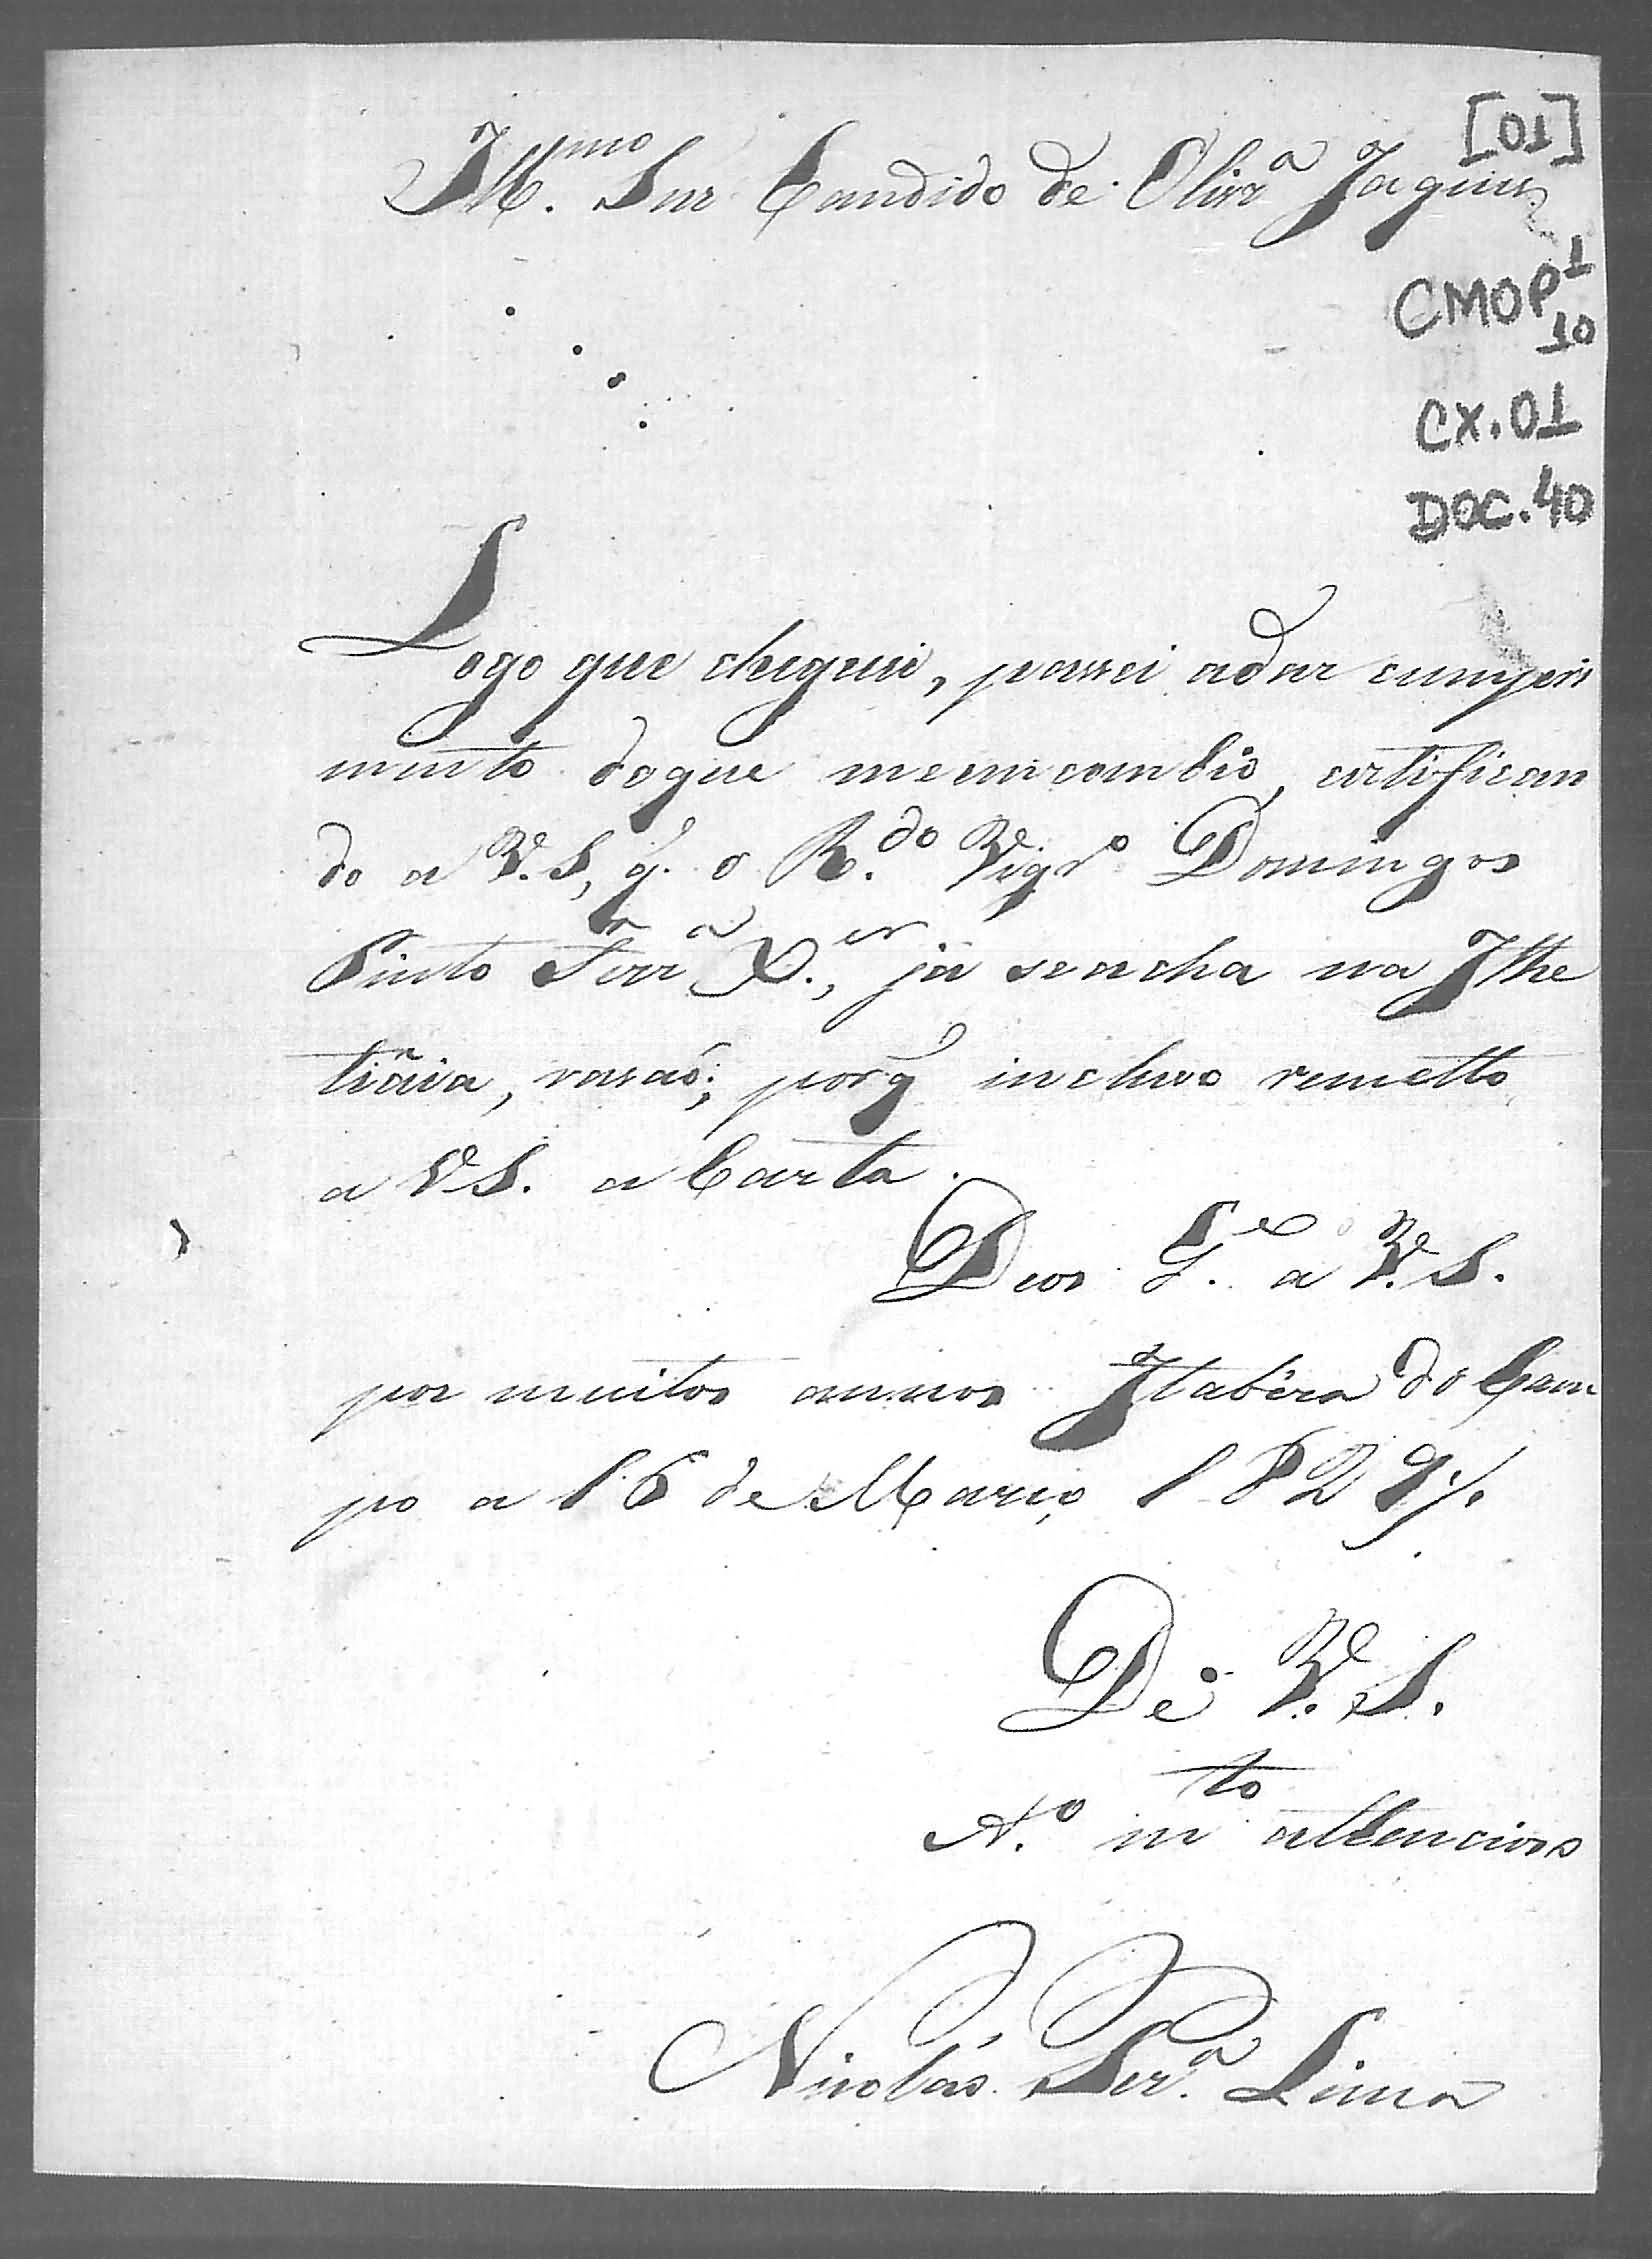 [01]
Ill.mo Snr Candido de Olivr.a Jaques
CMOP 1
10
CX.01
DOC.40
Logo que cheguei, passei adar cumpri
mento doque meemcombio, certifican
do a V.S, q. o R.do Vigr.o Domingos
Pinto Ferr.a X.er, já seacha na Ithe
tiáia, rasaõ; porq̃ incluso remetto
a V.S. a Carta.
Deos G.e a V.S.
por muitos annos Itabêra do Cam
po a 16 de Março 1829./.
De V. S.
m.to attencioso
Nicolás Per.a Lima